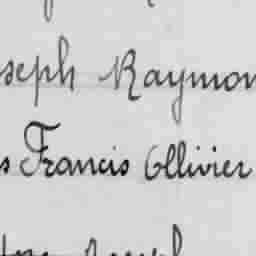 seph Raymon
s Francis Ollivier